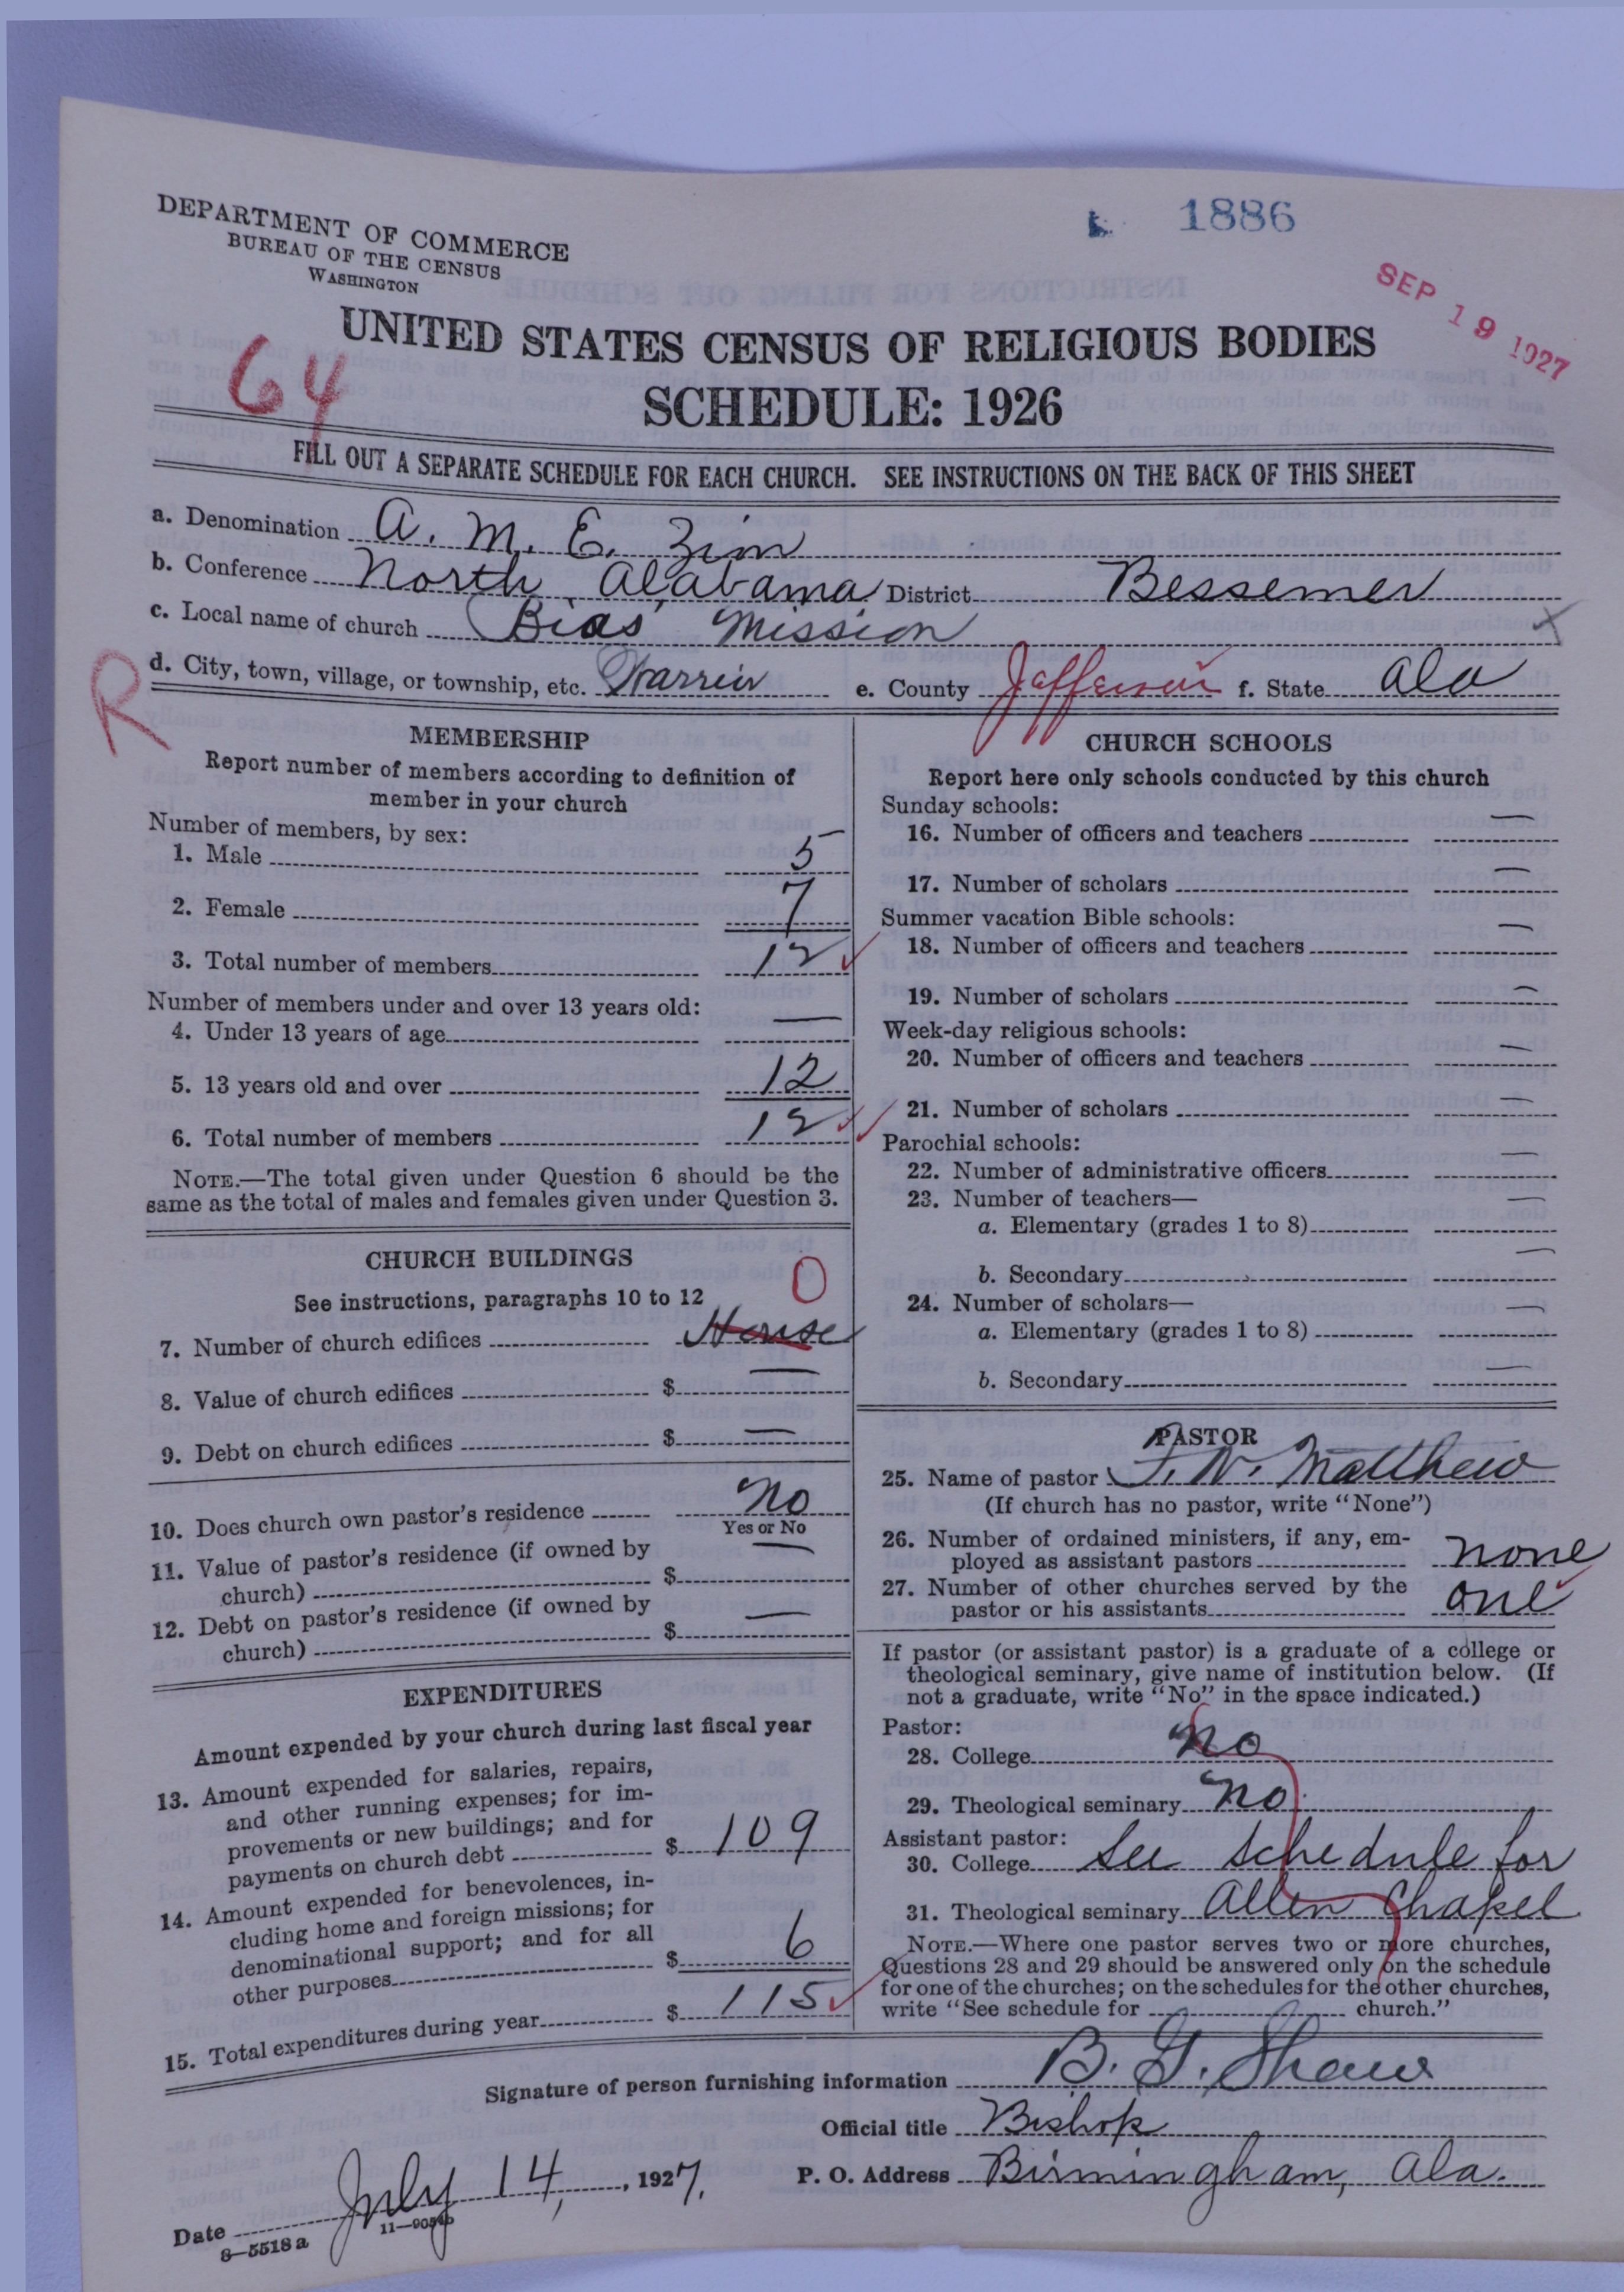 DEPARTMENT OF COMMERCE
BUREAU OF THE CENSUS
WASHINGTON
1886
SEP 19 1927
UNITED STATES CENSUS OF RELIGIOUS BODIES
SCHEDULE: 1926
64
FILL OUT A SEPARATE SCHEDULE FOR EACH CHURCH. SEE INSTRUCTIONS ON THE BACK OF THIS SHEET
a. Denomination A. M. E. Zion
b. Conference North Alabama District Bessemer
c. Local name of church Bias' Mission
R
d. City, town, village, or township, etc. Warrior e. County Jefferson f. State Ala
MEMBERSHIP
Report number of members according to definition of
member in your church
Number of members, by sex:
1. Male 5
2. Female 7
3. Total number of members 12
Number of members under and over 13 years old:
4. Under 13 years of age —
5. 13 years old and over 12
6. Total number of members 12
NOTE.—The total given under Question 6 should be the
same as the total of males and females given under Question 3.
CHURCH BUILDINGS
See instructions, paragraphs 10 to 12 0
7. Number of church edifices House
8. Value of church edifices $ —
9. Debt on church edifices $ —
10. Does church own pastor's residence No
Yes or No
11. Value of pastor's residence (if owned by
church) $ —
12. Debt on pastor's residence (if owned by
church) $ —
EXPENDITURES
Amount expended by your church during last fiscal year
13. Amount expended for salaries, repairs,
and other running expenses; for im-
provements or new buildings; and for
payments on church debt $ 109
14. Amount expended for benevolences, in-
cluding home and foreign missions; for
denominational support; and for all
other purposes $ 6
15. Total expenditures during year $ 115
CHURCH SCHOOLS
Report here only schools conducted by this church
Sunday schools:
16. Number of officers and teachers —
17. Number of scholars —
Summer vacation Bible schools:
18. Number of officers and teachers —
19. Number of scholars —
Week-day religious schools:
20. Number of officers and teachers —
21. Number of scholars —
Parochial schools:
22. Number of administrative officers —
23. Number of teachers—
a. Elementary (grades 1 to 8) —
b. Secondary —
24. Number of scholars—
a. Elementary (grades 1 to 8) —
b. Secondary —
PASTOR
25. Name of pastor F. W. Matthew
(If church has no pastor, write "None")
26. Number of ordained ministers, if any, em-
ployed as assistant pastors none
27. Number of other churches served by the
pastor or his assistants one
If pastor (or assistant pastor) is a graduate of a college or
theological seminary, give name of institution below. (If
not a graduate, write "No" in the space indicated.)
Pastor:
28. College no
29. Theological seminary no
Assistant pastor:
30. College See schedule for
31. Theological seminary Allen Chapel
NOTE.—Where one pastor serves two or more churches,
Questions 28 and 29 should be answered only on the schedule
for one of the churches; on the schedules for the other churches,
write "See schedule for church."
Signature of person furnishing information B. G. Shaw
Official title Bishop
Date July 14, 1927. P. O. Address Birmingham, Ala.
8—5518 a
11—9054b